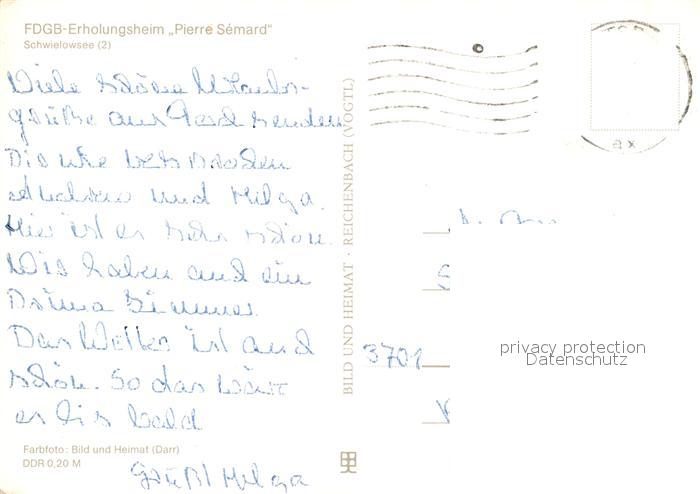 FDGB-Erholungsheim „Pierre Sémard"
Schwielowsee (2)
Viele schöne Urlaubs-
grüße aus senden
und Helga.
Hier ist es sehr schön.
Wir haben auch ein
Prima Zimmer.
Das Wetter ist auch
schön. So das wärs
bis bald
Grüßt Helga
Farbfoto: Bild und Heimat (Darr)
DDR 0,20 M
BILD UND HEIMAT · REICHENBACH (VOGTL)
ax
3701
privacy protection
Datenschutz